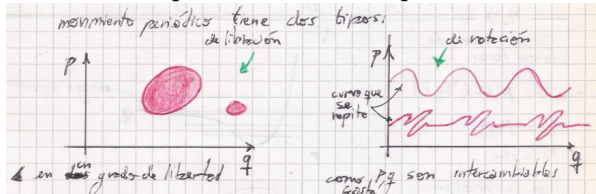 movimiento periódico tiene dos tipos:
de libración
de rotación
p
p
curva que
se
repite
q
q
en un grado de libertad
como p,q son intercambiables